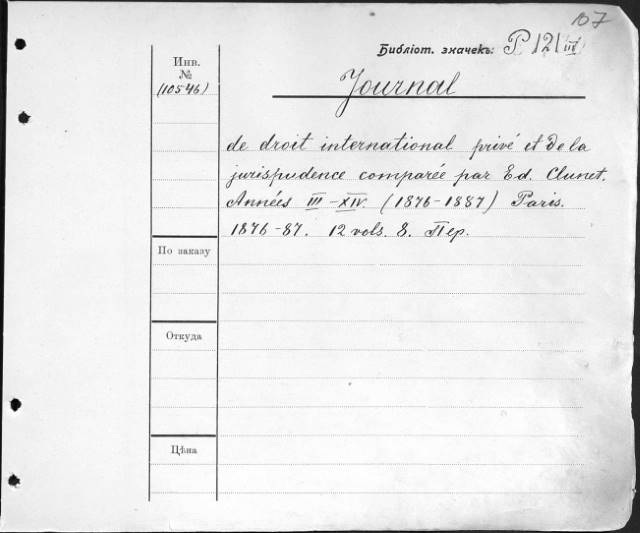 107
Библіот. значекъ: P 121 III
Инв.
№
(10546)
Journal
de droit international privé et de la
jurispudence comparée par Ed. Clunet.
Années III–XIV. (1876-1887) Paris.
1876-87. 12 vols. 8. Пер.
По заказу
Откуда
Цѣна